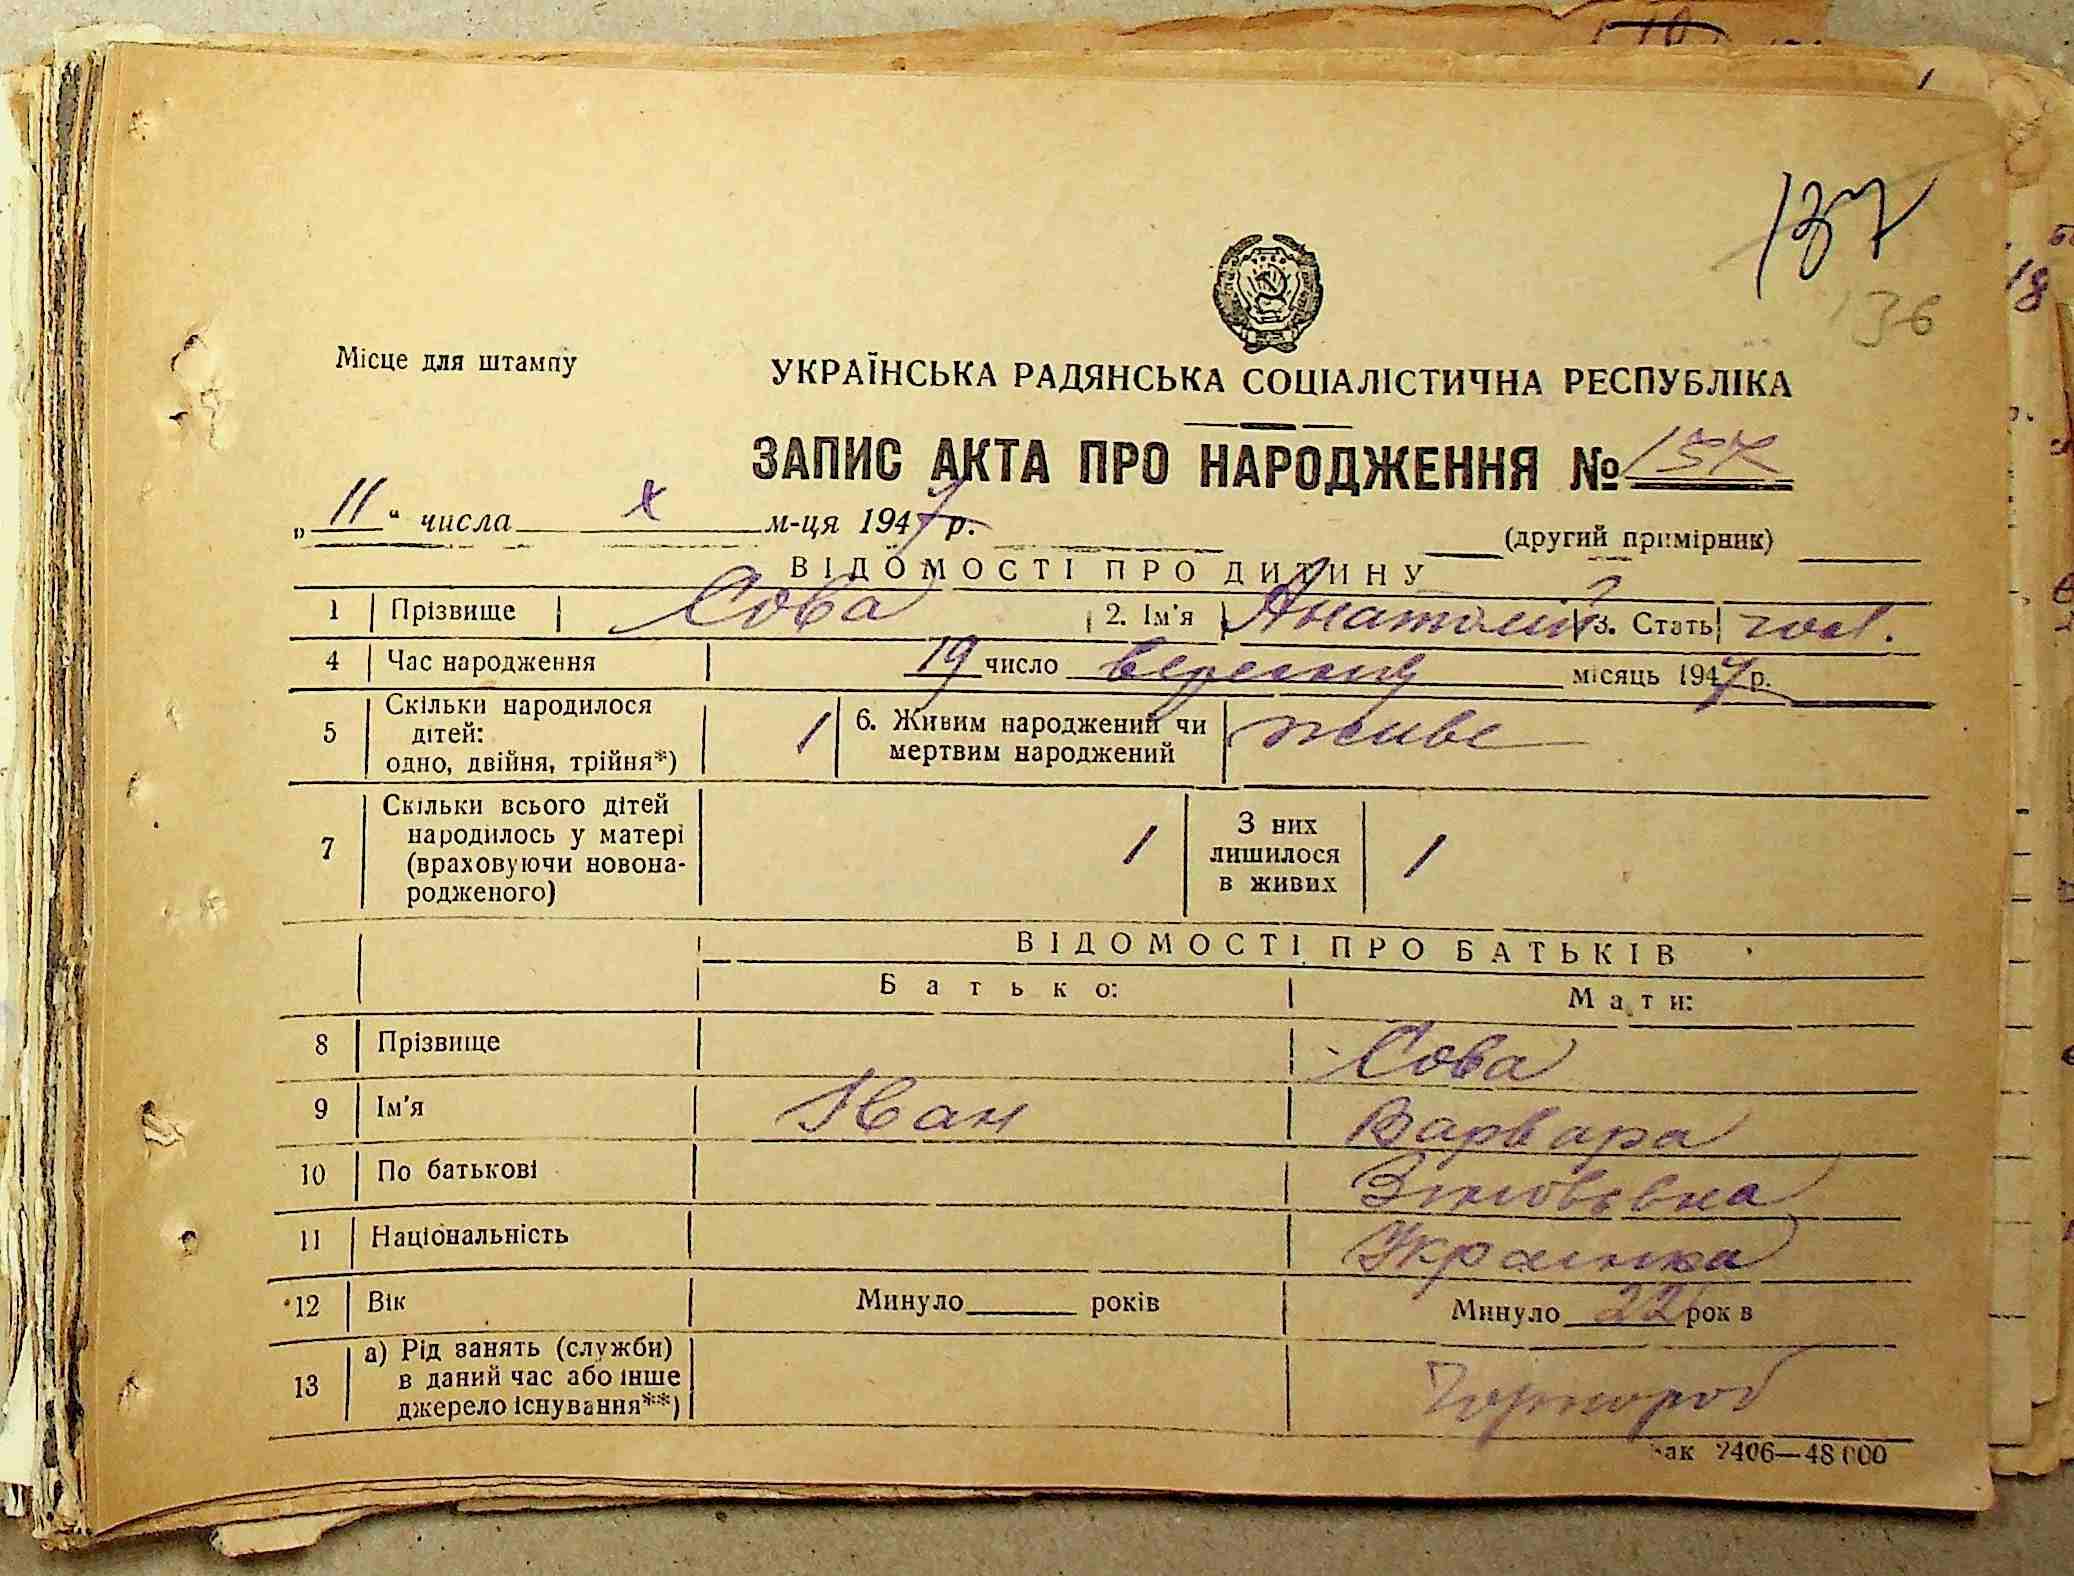 137
136
Місце для штампу
УКРАЇНСЬКА РАДЯНСЬКА СОЦІАЛІСТИЧНА РЕСПУБЛІКА
ЗАПИС АКТА ПРО НАРОДЖЕННЯ № 157
„11“ числа X м-ця 1947 р.
(другий примірник)
ВІДОМОСТІ ПРО ДИТИНУ
1 Прізвище Сова 2. Ім'я Анатолий 3. Стать чол.
4 Час народження 19 число вересня місяць 1947 р.
5 Скільки народилося дітей: одно, двійня, трійня*) 1 6. Живим народжений чи мертвим народжений живе
7 Скільки всього дітей народилось у матері (враховуючи новонародженого) 1 З них лишилося в живих 1
ВІДОМОСТІ ПРО БАТЬКІВ
Батько: Мати:
8 Прізвище Сова
9 Ім'я Іван Варвара
10 По батькові
11 Національність Українка
12 Вік Минуло років Минуло 22 рок в
13 а) Рід занять (служби) в даний час або інше джерело існування**) Чорнороб
Зак 2406—48 000
18